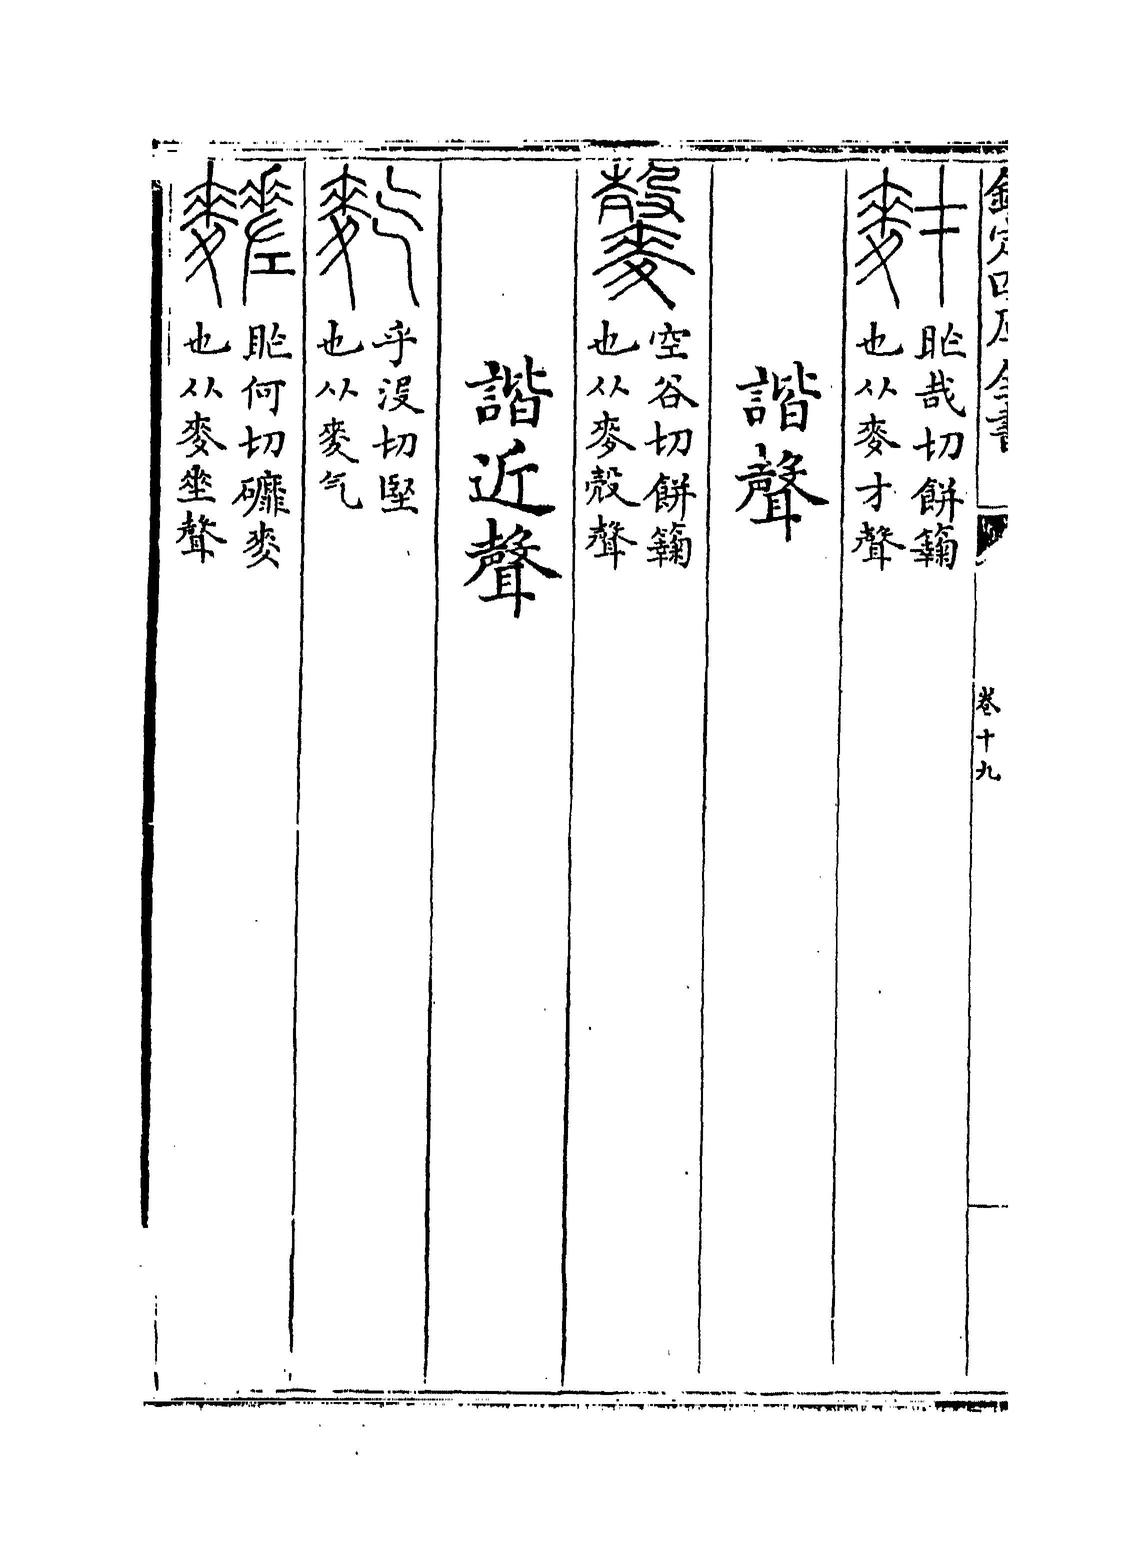 欽定四庫全書
卷十九
䴭
昨哉切餅
也从麥才聲
諧聲
䴢
空谷切餅
也从麥殻聲
諧近聲
麧
乎没切堅
也从麥气
䴾
昨何切䃺麥
也从麥坐聲